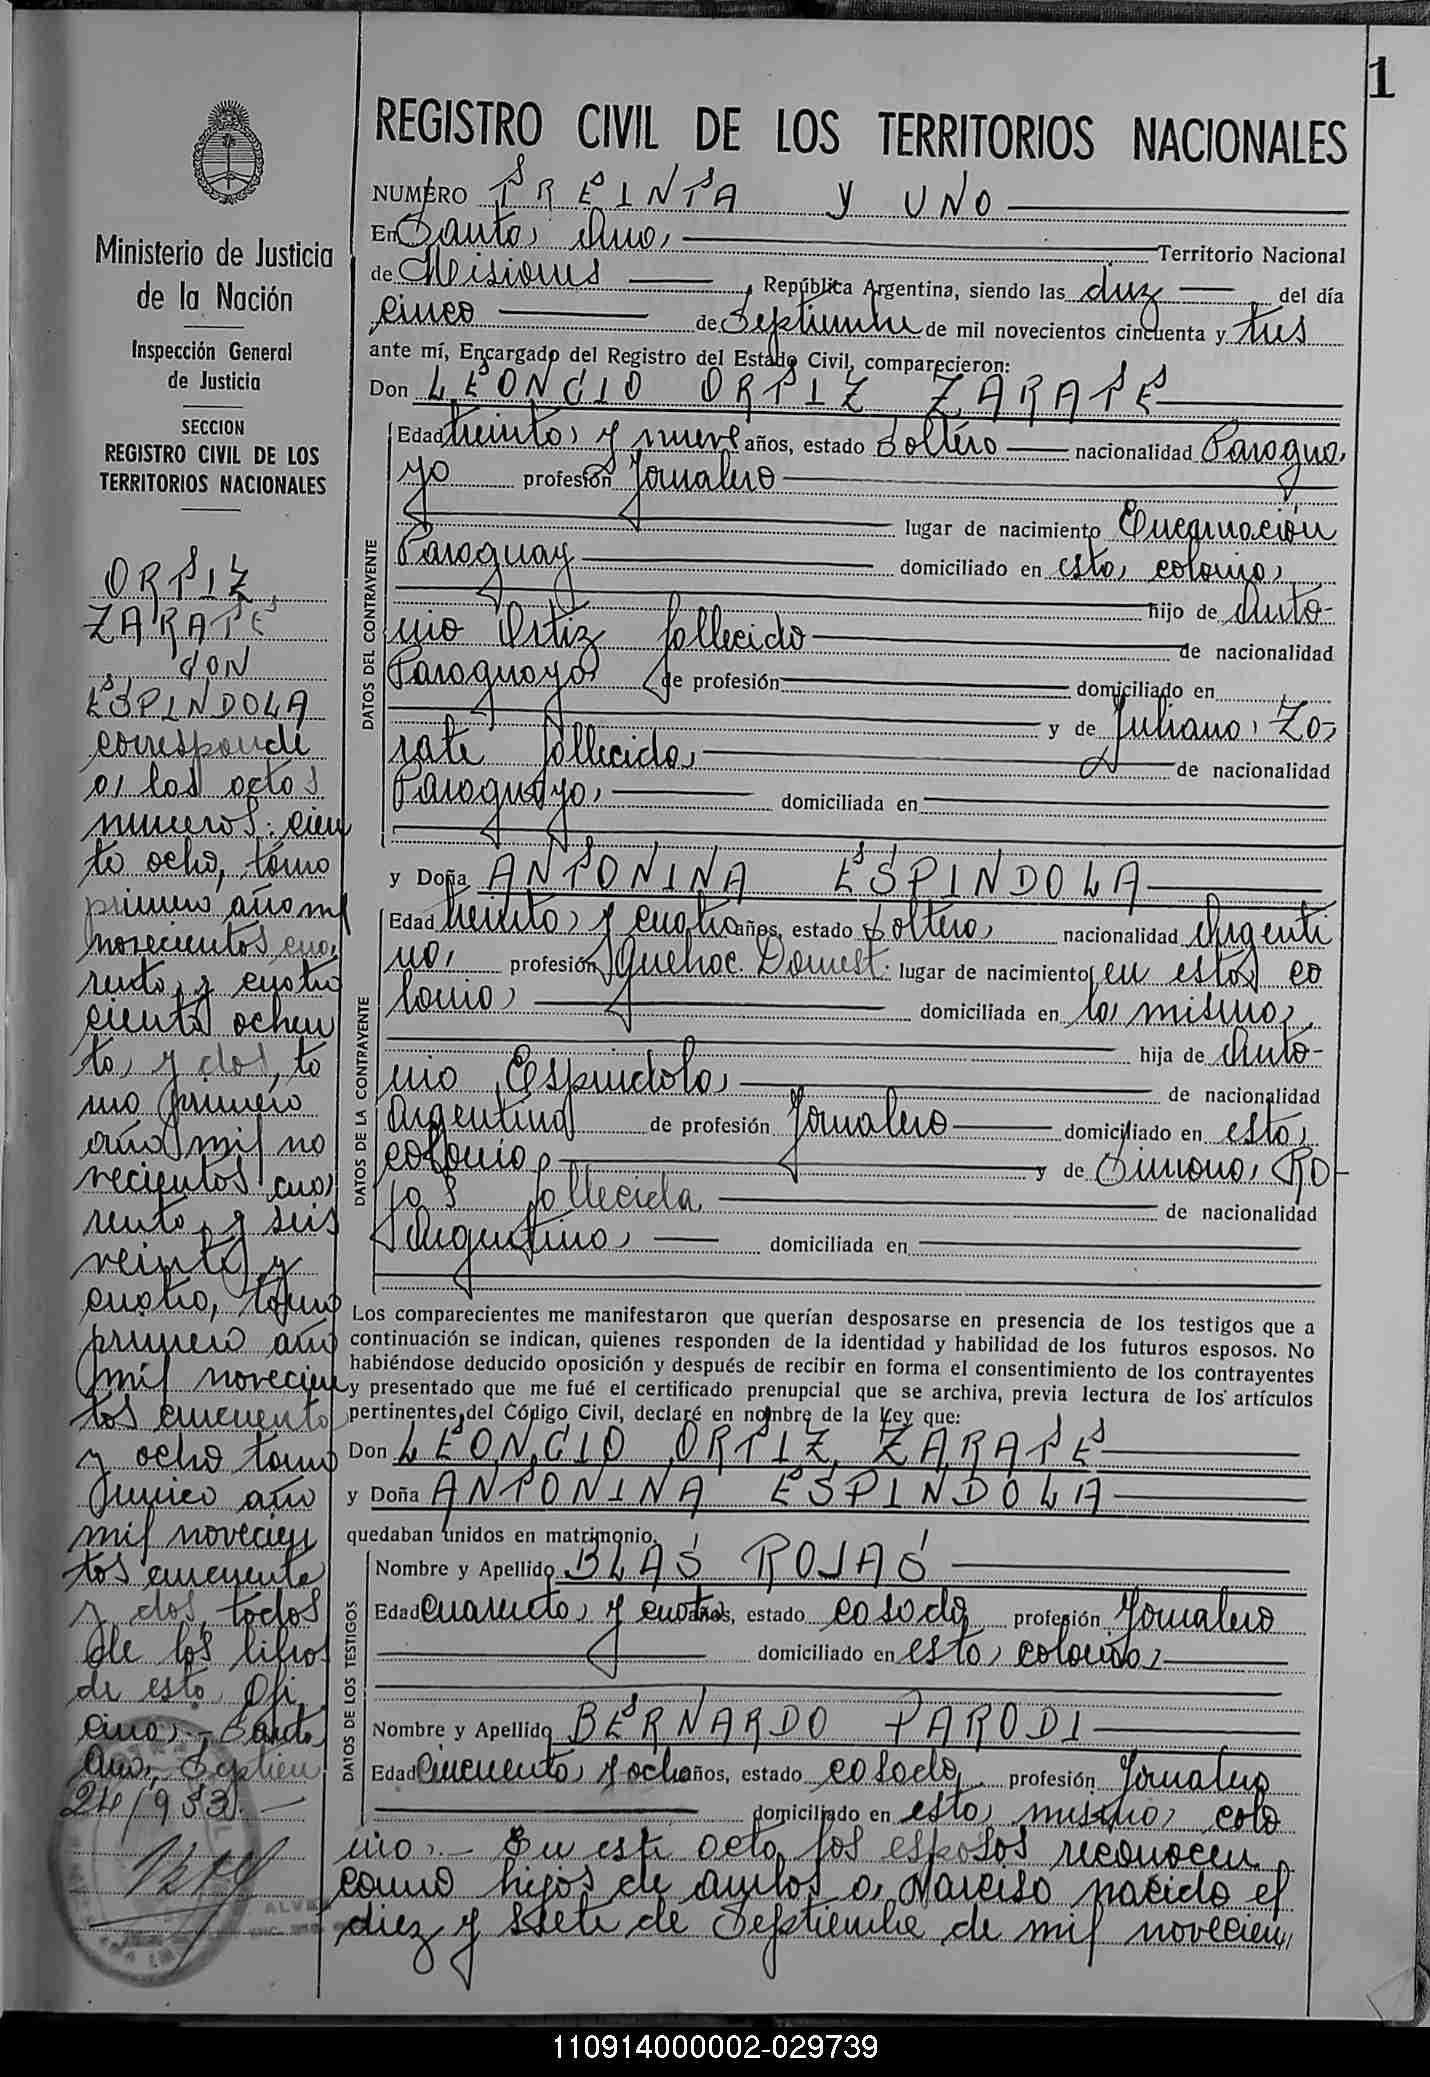 1
REGISTRO CIVIL DE LOS TERRITORIOS NACIONALES
NUMERO TREINTA Y UNO
En Santa Ana, Territorio Nacional
de Misiones, República Argentina, siendo las diez del día
cinco de Septiembre de mil novecientos cincuenta y tres
ante mí, Encargado del Registro del Estado Civil, comparecieron:
Don LEONCIO ORTIZ ZARATE
DATOS DEL CONTRAYENTE
Edad treinta y nueve años, estado Soltero nacionalidad Paragua
yo profesión Jornalero
lugar de nacimiento Encarnación
Paraguay domiciliado en esta colonia,
hijo de Anto-
nio Ortiz fallecido de nacionalidad
Paraguayo de profesión domiciliado en
y de Juliana Za-
rate fallecida de nacionalidad
Paraguaya, domiciliada en
y Doña ANTONINA ESPINDOLA
DATOS DE LA CONTRAYENTE
Edad treinta y cuatro años, estado Soltera, nacionalidad Argenti
na, profesión Quehac. Domest. lugar de nacimiento en esta co
lonia, domiciliada en la misma,
hija de Anto-
nio Espindola, de nacionalidad
argentina de profesión Jornalero domiciliado en esta
colonia y de Simona RO-
jas fallecida de nacionalidad
Argentina, domiciliada en
Los comparecientes me manifestaron que querían desposarse en presencia de los testigos que a
continuación se indican, quienes responden de la identidad y habilidad de los futuros esposos. No
habiéndose deducido oposición y después de recibir en forma el consentimiento de los contrayentes
y presentado que me fué el certificado prenupcial que se archiva, previa lectura de los artículos
pertinentes del Código Civil, declaré en nombre de la Ley que:
Don LEONCIO ORTIZ ZARATE
y Doña ANTONINA ESPINDOLA
quedaban unidos en matrimonio.
DATOS DE LOS TESTIGOS
Nombre y Apellido BLAS ROJAS
Edad cuarenta y cuatro años, estado casado profesión Jornalero
domiciliado en esta colonia,
Nombre y Apellido BERNARDO PARODI
Edad cincuenta y ocho años, estado casado, profesión Jornalero
domiciliado en esta misma colo
nia.- En este acto los esposos reconocen
como hijos de ambos a Narciso nacido el
diez y siete de Septiembre de mil novecien
Ministerio de Justicia
de la Nación
Inspección General
de Justicia
SECCION
REGISTRO CIVIL DE LOS
TERRITORIOS NACIONALES
ORTIZ
ZARATE
CON
ESPINDOLA
corresponde
a las actas
numeros: cien
to ocho, tomo
primero año mil
novecientos cua,
renta y cuatro
ciento ochen
ta, y dos, to
mo primero
año mil no
vecientos cua,
renta y seis
veinte y
cuatro, tomo
primero año
mil novecien
tos cincuenta
y ocho tomo
unico año
mil novecien
tos cincuenta
y dos, todos
de los libros
de esta Ofi
cina.- Santa
Ana, Septiem
24/953.-
110914000002-029739